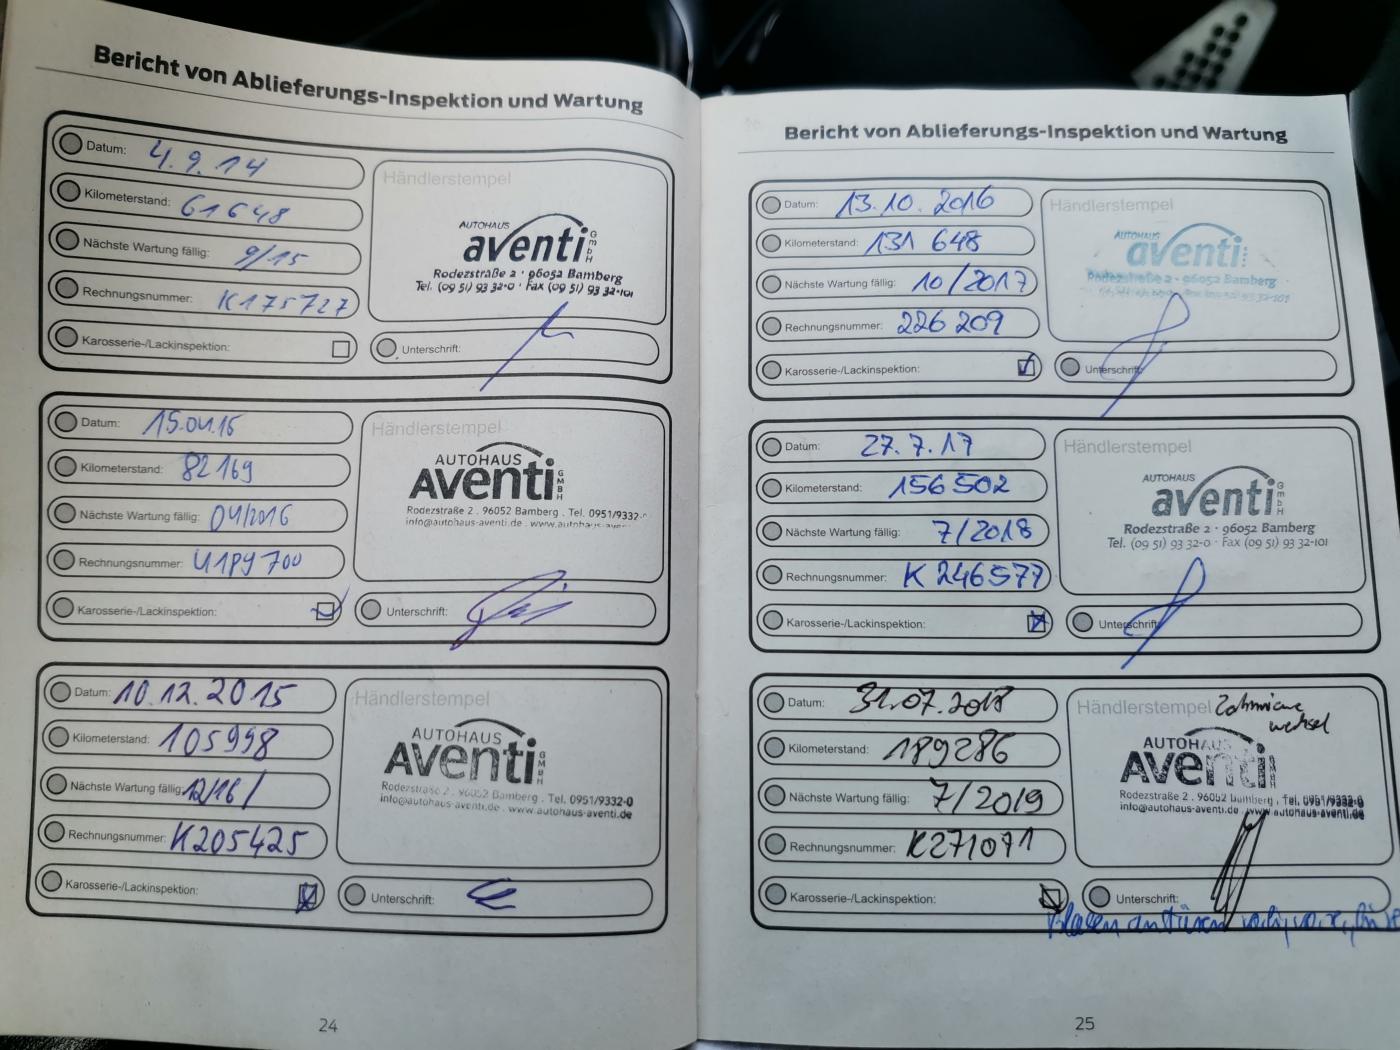 Bericht von Ablieferungs-Inspektion und Wartung
Datum: 4.9.14
Kilometerstand: 61648
Nächste Wartung fällig: 9/15
Rechnungsnummer: K175727
Karosserie-/Lackinspektion:
Händlerstempel
AUTOHAUS
aventi GmbH
Rodezstraße 2 · 96052 Bamberg
Tel. (09 51) 93 32-0 · Fax (09 51) 93 32-101
Unterschrift:
Datum: 15.04.15
Kilometerstand: 82169
Nächste Wartung fällig: 04/2016
Rechnungsnummer:
Karosserie-/Lackinspektion:
Händlerstempel
AUTOHAUS
AVenti GMBH
Rodezstraße 2 . 96052 Bamberg . Tel. 0951/9332-0
info@autohaus-aventi.de . www.autohaus-aven
Unterschrift:
Datum: 10.12.2015
Kilometerstand: 105998
Nächste Wartung fällig: 12/16/
Rechnungsnummer: K205425
Karosserie-/Lackinspektion:
Händlerstempel
AUTOHAUS
AVenti GMBH
Rodezstraße 2 . 96052 Bamberg . Tel. 0951/9332-0
info@autohaus-aventi.de . www.autohaus-aventi.de
Unterschrift:
24
Bericht von Ablieferungs-Inspektion und Wartung
Datum: 13.10.2016
Kilometerstand: 131 648
Nächste Wartung fällig: 10/2017
Rechnungsnummer: 226 209
Karosserie-/Lackinspektion:
Händlerstempel
AUTOHAUS
aventi
Rodezstraße 2 · 96052 Bamberg
Unterschrift:
Datum: 27.7.17
Kilometerstand: 156 502
Nächste Wartung fällig: 7/2018
Rechnungsnummer: K 246577
Karosserie-/Lackinspektion:
Händlerstempel
AUTOHAUS
aventi GmbH
Rodezstraße 2 · 96052 Bamberg
Tel. (09 51) 93 32-0 · Fax (09 51) 93 32-101
Unterschrift:
Datum: 31.07.2018
Kilometerstand: 189286
Nächste Wartung fällig: 7/2019
Rechnungsnummer: K271071
Karosserie-/Lackinspektion:
Händlerstempel Zahnriemen
wechsel
AUTOHAUS
AVenti
Rodezstraße 2 . 96052 Bamberg . Tel. 0951/9332-0
info@autohaus-aventi.de . www.autohaus-aventi.de
Unterschrift:
Blasen an Türen
25